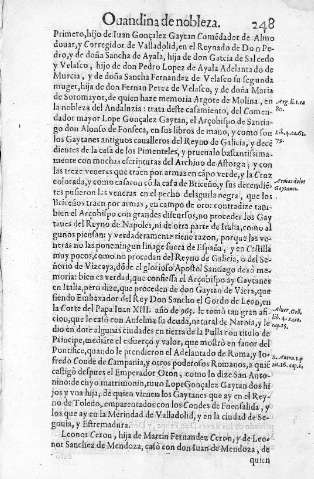 Quandina de nobleza. 248
Primero, hijo de Iuan Gonçalez Gaytan Comẽdador de Almo
douar, y Corregidor de Valladolid, en el Reynado de Don Pe-
dro, y de doña Sancha de Ayala, hija de don Garcia de Salcedo
y Velasco, hijo de don Pedro Lopez de Ayala Adelantado de
Murcia, y de doña Sancha Fernandez de Velasco su segunda
muger, hija de don Fernan Perez de Velasco, y de doña Maria
de Sotomayor, de quien haze memoria Argote de Molina, en
la nobleza del Andaluzia: trata deste casamiento, del Comen-
dador mayor Lope Gonçalez Gaytan, el Arçobispo de Santia-
go don Alonso de Fonseca, en sus libros de mano, y como son
los Gaytanes antiguos caualleros del Reyno de Galicia, y decẽ
dientes de la casa de los Pimenteles, y prueualo bastantissima-
mente con muchas escrituras del Archiuo de Astorga; y con
las treze veneras que traen por armas en cãpo verde, y la Cruz
colorada, y como casaron cõ la casa de Briceño, y sus decendiẽ
tes pusieron las veneras en el pecho del aguila negra, que los
Briceños traen por armas, en campo de oro: contradize tambien
el Arçobispo con grandes discursos, no proceder los Gay
tanes del Reyno de Napoles, ni de otra parte de Italia, como al
gunos piensan; y verdaderamente tiene razon, porque las ve-
neras no las ponen ningun linage fuera de España, y en Castilla
muy pocos, como no procedan del Reyno de Galicia, o del Se-
ñorio de Vizcaya, dõde el glorioso Apostol Santiago dexò me-
moria: bien es verdad, que confiessa el Arçobispo ay Gaytanes
en Italia, pero dize, que proceden de don Gaytan de Viera, que
siendo Embaxador del Rey Don Sancho el Gordo de Leon, en
la Corte del Papa Iuan XIII. año de 965. le tomò tan gran afi-
cion, que le casò con Anselma su deuda, natural de Narnia, y le
dio en dote algunas ciudades en tierra de la Pulla con titulo de
Principe, mediante el esfuerço y valor, que mostrò en fauor del
Pontifice, quando le prendieron el Adelantado de Roma, y Io-
fredo Conde de Campania, y otros poderosos Romanos, a quiẽ
castigò despues el Emperador Oton, como lo dize San Anto-
nino: de cuyo matrimonio, tuuo Lope Gonçalez Gaytan dos hi-
jos y vna hija, de quien vienen los Gaytanes que ay en el Rey-
no de Toledo, emparentados con los Condes de Fuensalida, y
los que ay en la Merindad de Valladolid, y en la ciudad de Se-
gouia, y Estremadura.
Leonor Ceron, hija de Martin Fernandez Ceron, y de Leo-
nor Sanchez de Mendoza, casò con don Iuan de Mendoza, de
quien